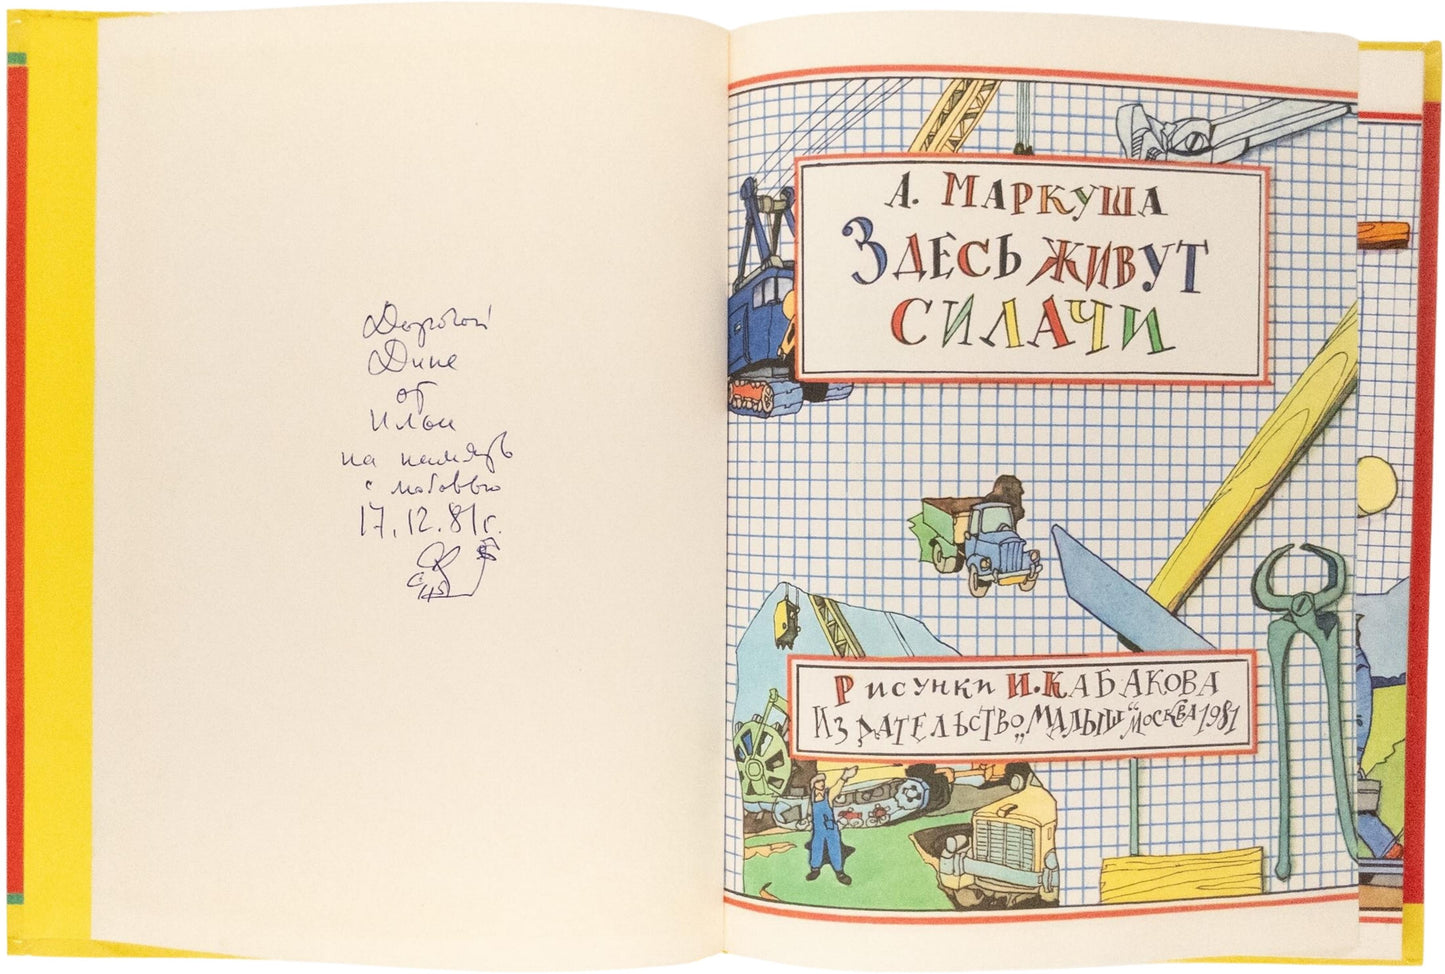 Дорогой
Дине
от
Ильи
на память
с любовью
17.12.81г.
А. МАРКУША
ЗДЕСЬ ЖИВУТ
СИЛАЧИ
РИСУНКИ И. КАБАКОВА
ИЗДАТЕЛЬСТВО „МАЛЫШ“ МОСКВА 1981